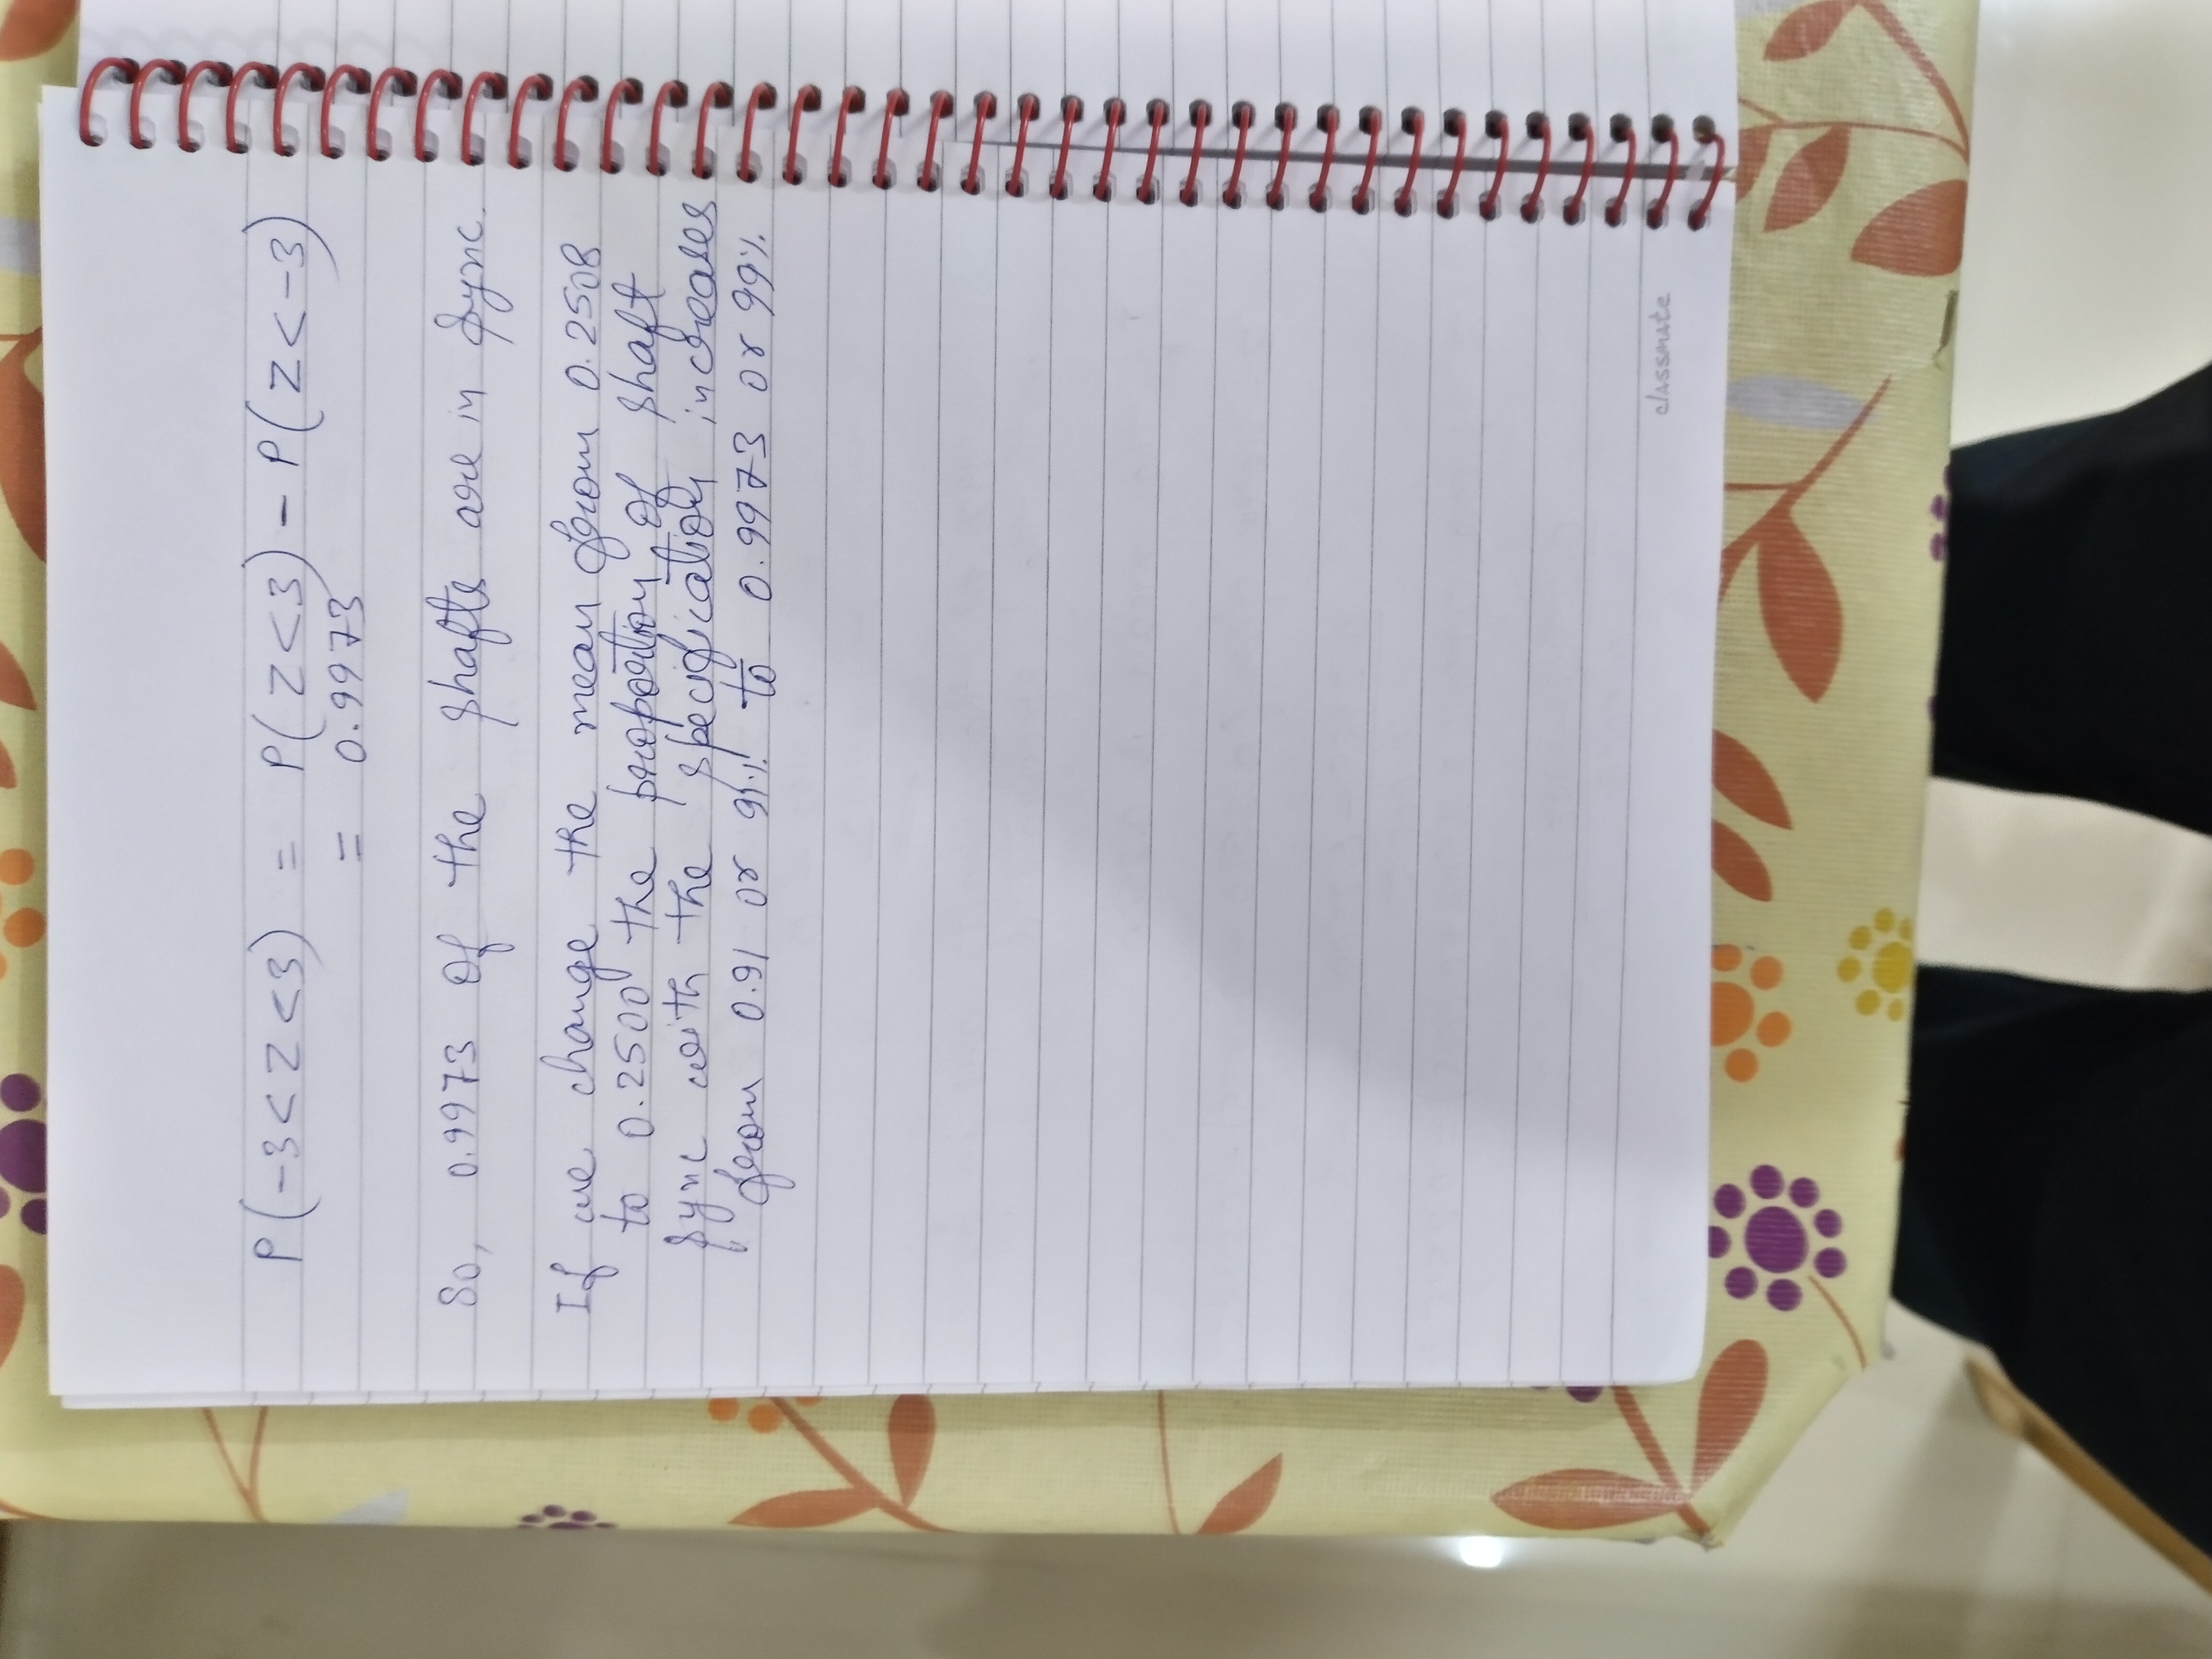 P(-3<Z<3) = P(Z<3) - P(Z<-3)
= 0.9973
So, 0.9973 of the shafts are in sync.
If we change the mean from 0.2508
to 0.2500 the proportion of shaft
sync with the specification increases
from 0.91 or 91% to 0.9973 or 99%
classmate